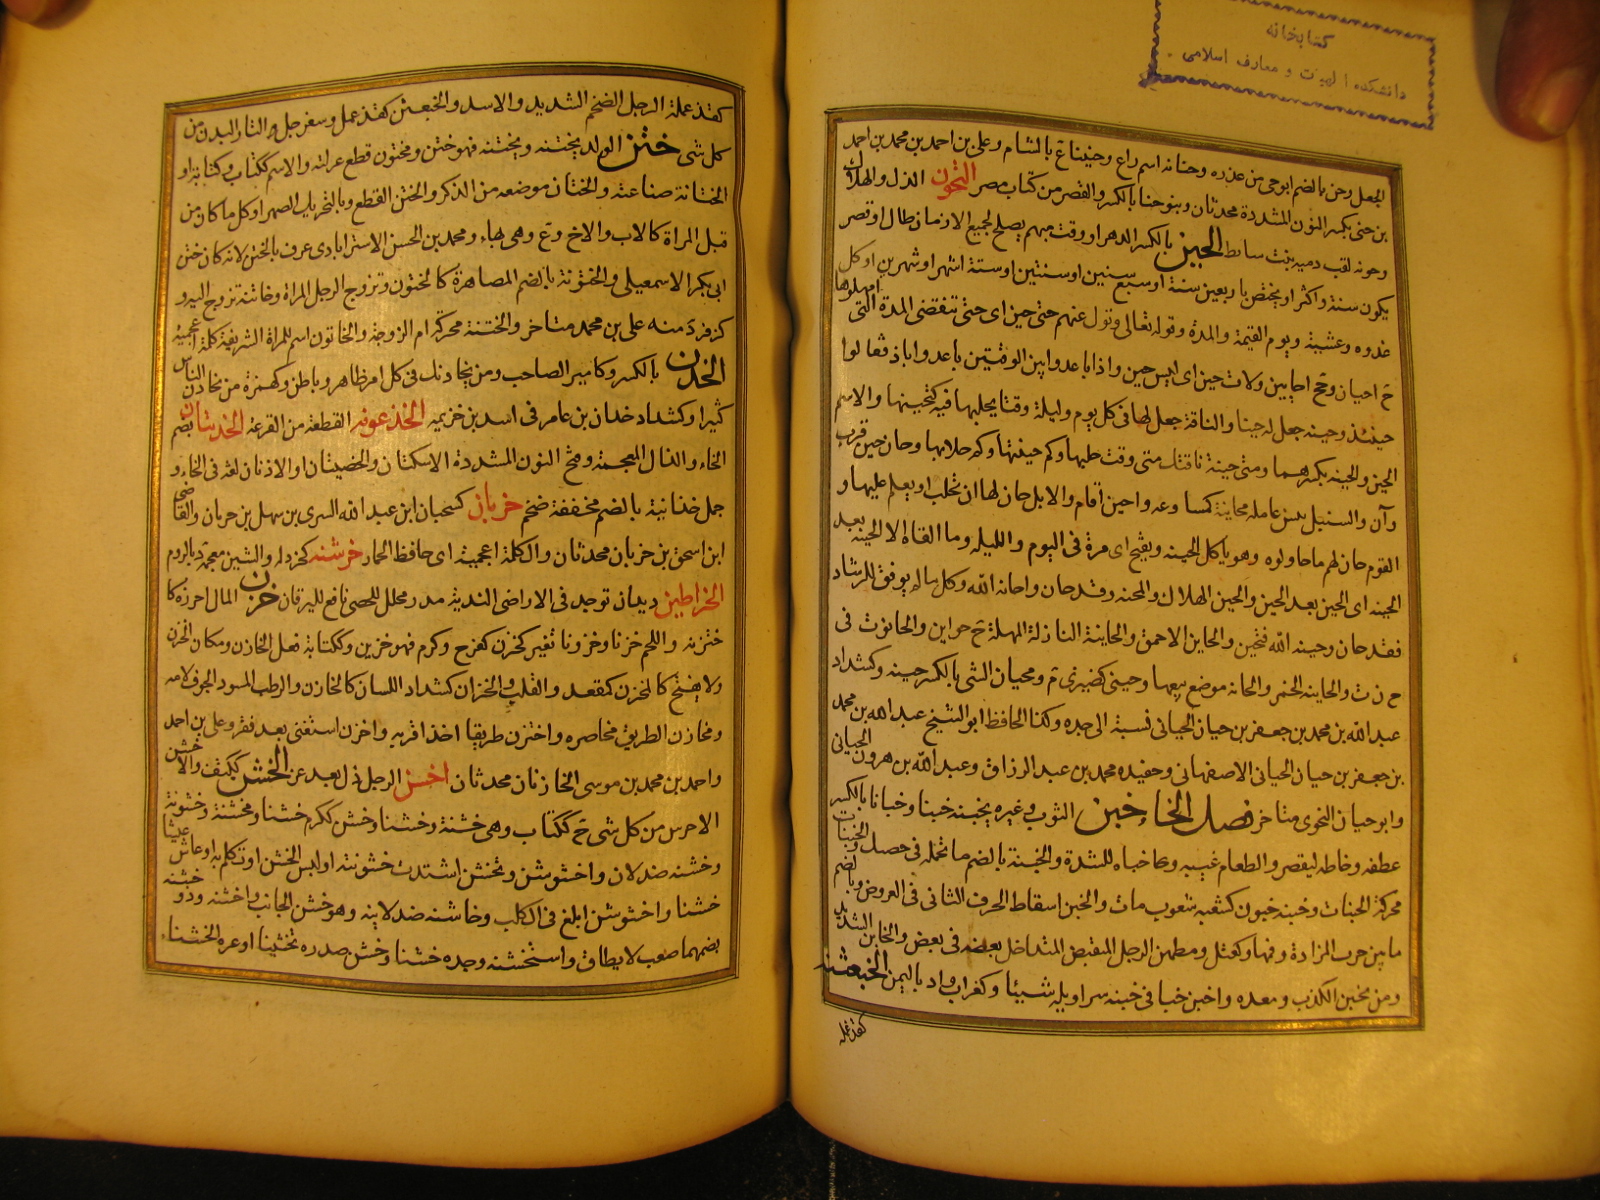 كتابخانه
دانشكده الهيات و معارف اسلامى
الجعل وحن بالضم ابوحى من عذره وحنانه اسم راع وحنيناء ع بالشام وعلى بن احمد بن محمد بن احمد
بن حنى بكسر النون المشددة محدثان وبنو حنا بالكسر والقصر من كتاب مصر التحون الذل والهلاك
وحونه لقب دميرىنت ساىط الحين بالكسر الدهر او وقت مبهم يصلح لجميع الازمان طال او قصر
يكون سنة واكثر او يختص باربعين سنة او سبع سنين او سنتين او ستة اشهر او شهرين او كل
غدوه وعشية ويوم القيمة والمدة وقوله تعالى وتول عنهم حتى حين اى حتى تنقضى المدة التى امهلوها
ج احيان وجج احايين ولات حين اى ليس حين واذا باعدوا بين الوقتين باعدوا باذ فقالوا
حينئذ وحينه جعل له حينا والناقة جعل لها فى كل يوم وليلة وقتا يحلبها فيه كتحينها والاسم
الحين والحينه بكسرهما ومتى حينة ناقتك متى وقت حلبها وكم حينتها وكم حلابها وحان حين قرب
وآن والسنبل يبس عامله محاينة كساوعه واحين اقام والابل حان لها ان تحلب او يعلم عليها و
القوم حان لهم ما حاولوه وهو ياكل الحينه ويفتح اى مرة فى اليوم والليله وما القاه الا الحينه بعد
الحينه اى الحين بعد الحين والحين الهلاك والمحنه وقد حان واحانه الله وكل ما لم يوفق للرشاد
فقد حان وحينه الله فتحين والحاين الاحمق والحاينة النازلة المهلة ج حواين والحانوت فى
ح ن ت والحانيه الخمر والحانة موضع بيعها وحينى كضيزى ة ومحيان الشى بالكسر حينه وكشداد
عبد الله بن محمد بن جعفر بن حيان الحيانى نسبة الى جده وكذا الحافظ ابو الشيخ عبد الله بن محمد
بن جعفر بن حيان الحيانى الاصفهانى وحفيده محمد بن عبد الرزاق وعبد الله بن هرون الحيانى
وابو حيان النحوى متاخر فصل الخاء خبن الثوب وغيره يخبنه خبنا وخبانا بالكسر
عطفه وخاطه ليقصر والطعام غيبه وخباه للشدة والخبنة بالضم ما تحمله فى حضنك والخبنات
محركة الخنبات وخبنه خبون كشعبه شعوب مات والخبن اسقاط الحرف الثانى فى العروض وبالضم
ما بين خرب المزادة وفمها وكعتل ومطمئن الرجل المتقبض المتداخل بعضه فى بعض والخابن الشديد
ومن يخبن الكذب ومعده واخبن خبا فى خبنه سراويله شيئا وكغراب واد باليمن الخبعثنه
كقذعمله
كقذعملة الرجل الضخم الشديد والاسد والخبعثن كقذعمل وسفرجل والتار البدن من
كل شى ختن الولد يختنه ويختنه فهو ختن ومختون قطع غرلته والاسم ككتاب وكتابة او
الختانة صناعته والختان موضعه من الذكر والختن القطع وبالتحريك الصهر او كل ما كان من
قبل المراة كالاب والاخ وع وهى بهاء ومحمد بن الحسن الاسترابادى عرف بالختن لانه كان ختن
ابى بكر الاسمعيلى والختونة بالضم المصاهرة كالختون وتزوج الرجل المراة وخاتنه تزوج اليه و
كزفر د منه على بن محمد متاخر والختنة محركة ام الزوجة والخاتون اسم للمراة الشريفة كلمة اعجمية
الخدن بالكسر وكامير الصاحب ومن يخادنك فى كل امر ظاهر وباطن وكهمزة من يخادن الناس
كثيرا وكشداد خدان بن عامر فى اسد بن خزيمه الخذعونه القطعة من القرعة الخذنتان بضم
الخاء والذال المعجمة وفتح النون المشددة الاسكتان والخصيتان والاذنان لغة فى الحاء و
جمل خذانية بالضم مخففة ضخم خربان كسحبان ابن عبد الله السرى بن سهل بن خربان والقاضى
ابن اسحق بن خربان محدثان والكلمة اعجمية اى حافظ الحمار خرشنه كخردله والشين معجمة د بالروم
الخراطين ديدان توجد فى الاراضى الندية مدر محلل للحصى نافع لليرقان خزن المال احرزه كا
ختزنه واللحم خزنا وخزونا تغير كخزن كفرح وكرم فهو خزين وككتابة فعل الخازن ومكان الخزن
ولا يفتح كالمخزن كمقعد والقلب والخزان كشداد اللسان كالخازن والرطب المسود الجوف لامه
ومخازن الطريق مخاصره واختزن طريقا اخذ اقربه واخزن استغنى بعد فقر وعلى بن احمد
واحمد بن محمد بن موسى الخازنان محدثان اخسن الرجل ذل بعد عز الخشن ككتف والاخشن
الاحرس من كل شى ج ككتاب وهى خشنة وخشنا وخش ككرم خشنا ومخشنة وخشونة
وخشنه ضد لان واخشوشن وتخشن اشتدت خشونته او لبس الخشن او تكلم به او عاش عيشا
خشنا واخشوشن ابلغ فى الكل وخاشنه ضد لاينه وهو خشن الجانب واخشنه وذو خشنه
بضمهما صعب لا يطاق واستخشنه وجده خشنا وخشن صدره تخشينا اوغره الخشناء